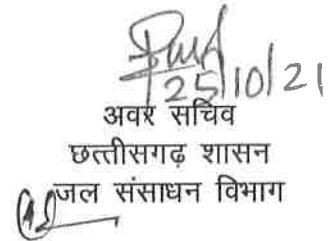 25/10/21
अवर सचिव
छत्तीसगढ़ शासन
जल संसाधन विभाग